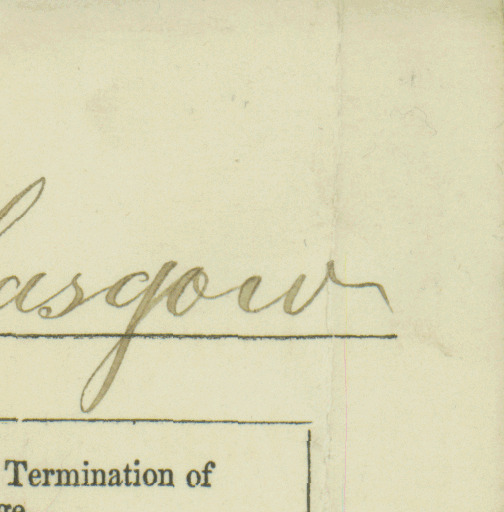 lasgow
Termination of
ge